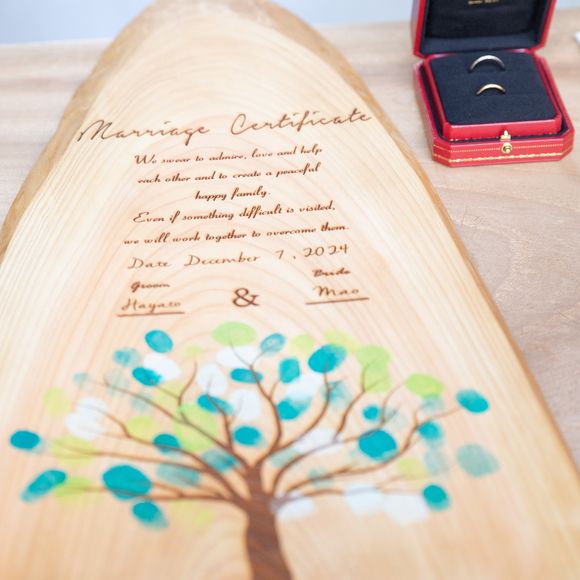 Marriage Certificate
We swear to admire, love and help
each other and to create a peaceful
happy family.
Even if something difficult is visited,
we will work together to overcome them.
Date December 7, 2024
Groom Bride
Hayato & Mao